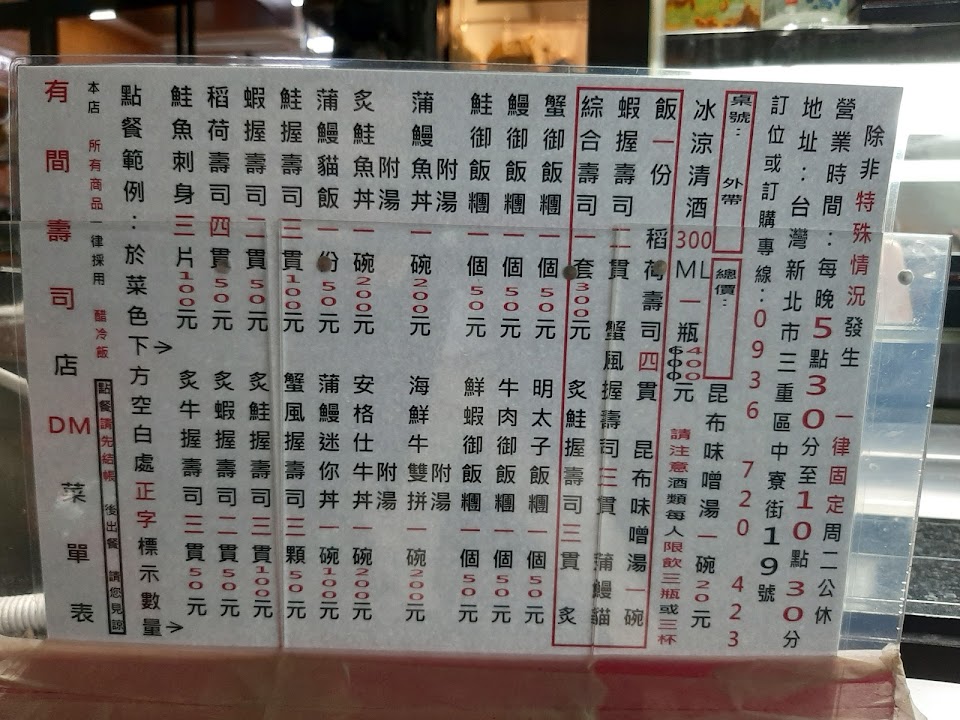 有間壽司店DM菜單表
本店 所有商品 一律採用 醋冷飯
點餐請先結帳 後出餐 請您見諒
點餐範例：於菜色下方空白處正字標示數量→
→
鮭魚刺身三片100元 炙牛握壽司三貫50元
稻荷壽司四貫50元 炙蝦握壽司二貫50元
蝦握壽司二貫50元 炙鮭握壽司三貫100元
鮭握壽司三貫100元 蟹風握壽司三顆50元
蒲鰻貓飯一份50元 蒲鰻迷你丼一碗100元
炙鮭魚丼一碗200元 安格仕牛丼一碗200元
附湯 附湯
蒲鰻魚丼一碗200元 海鮮牛雙拼一碗200元
附湯 附湯
鮭御飯糰一個50元 鮮蝦御飯糰一個50元
鰻御飯糰一個50元 牛肉御飯糰一個50元
蟹御飯糰一個50元 明太子飯糰一個50元
綜合壽司一套300元 炙鮭握壽司三貫 炙
蝦握壽司二貫 蟹風握壽司三貫 蒲鰻貓
飯一份 稻荷壽司四貫 昆布味噌湯一碗
請注意酒類每人限飲三瓶或三杯
冰涼清酒300ML一瓶400元 昆布味噌湯一碗20元
桌號： 外帶
總價：
訂位或訂購專線：0936 720 423
地址：台灣新北市三重區中寮街19號
營業時間：每晚5點30分至10點30分
除非特殊情況發生 一律固定周二公休